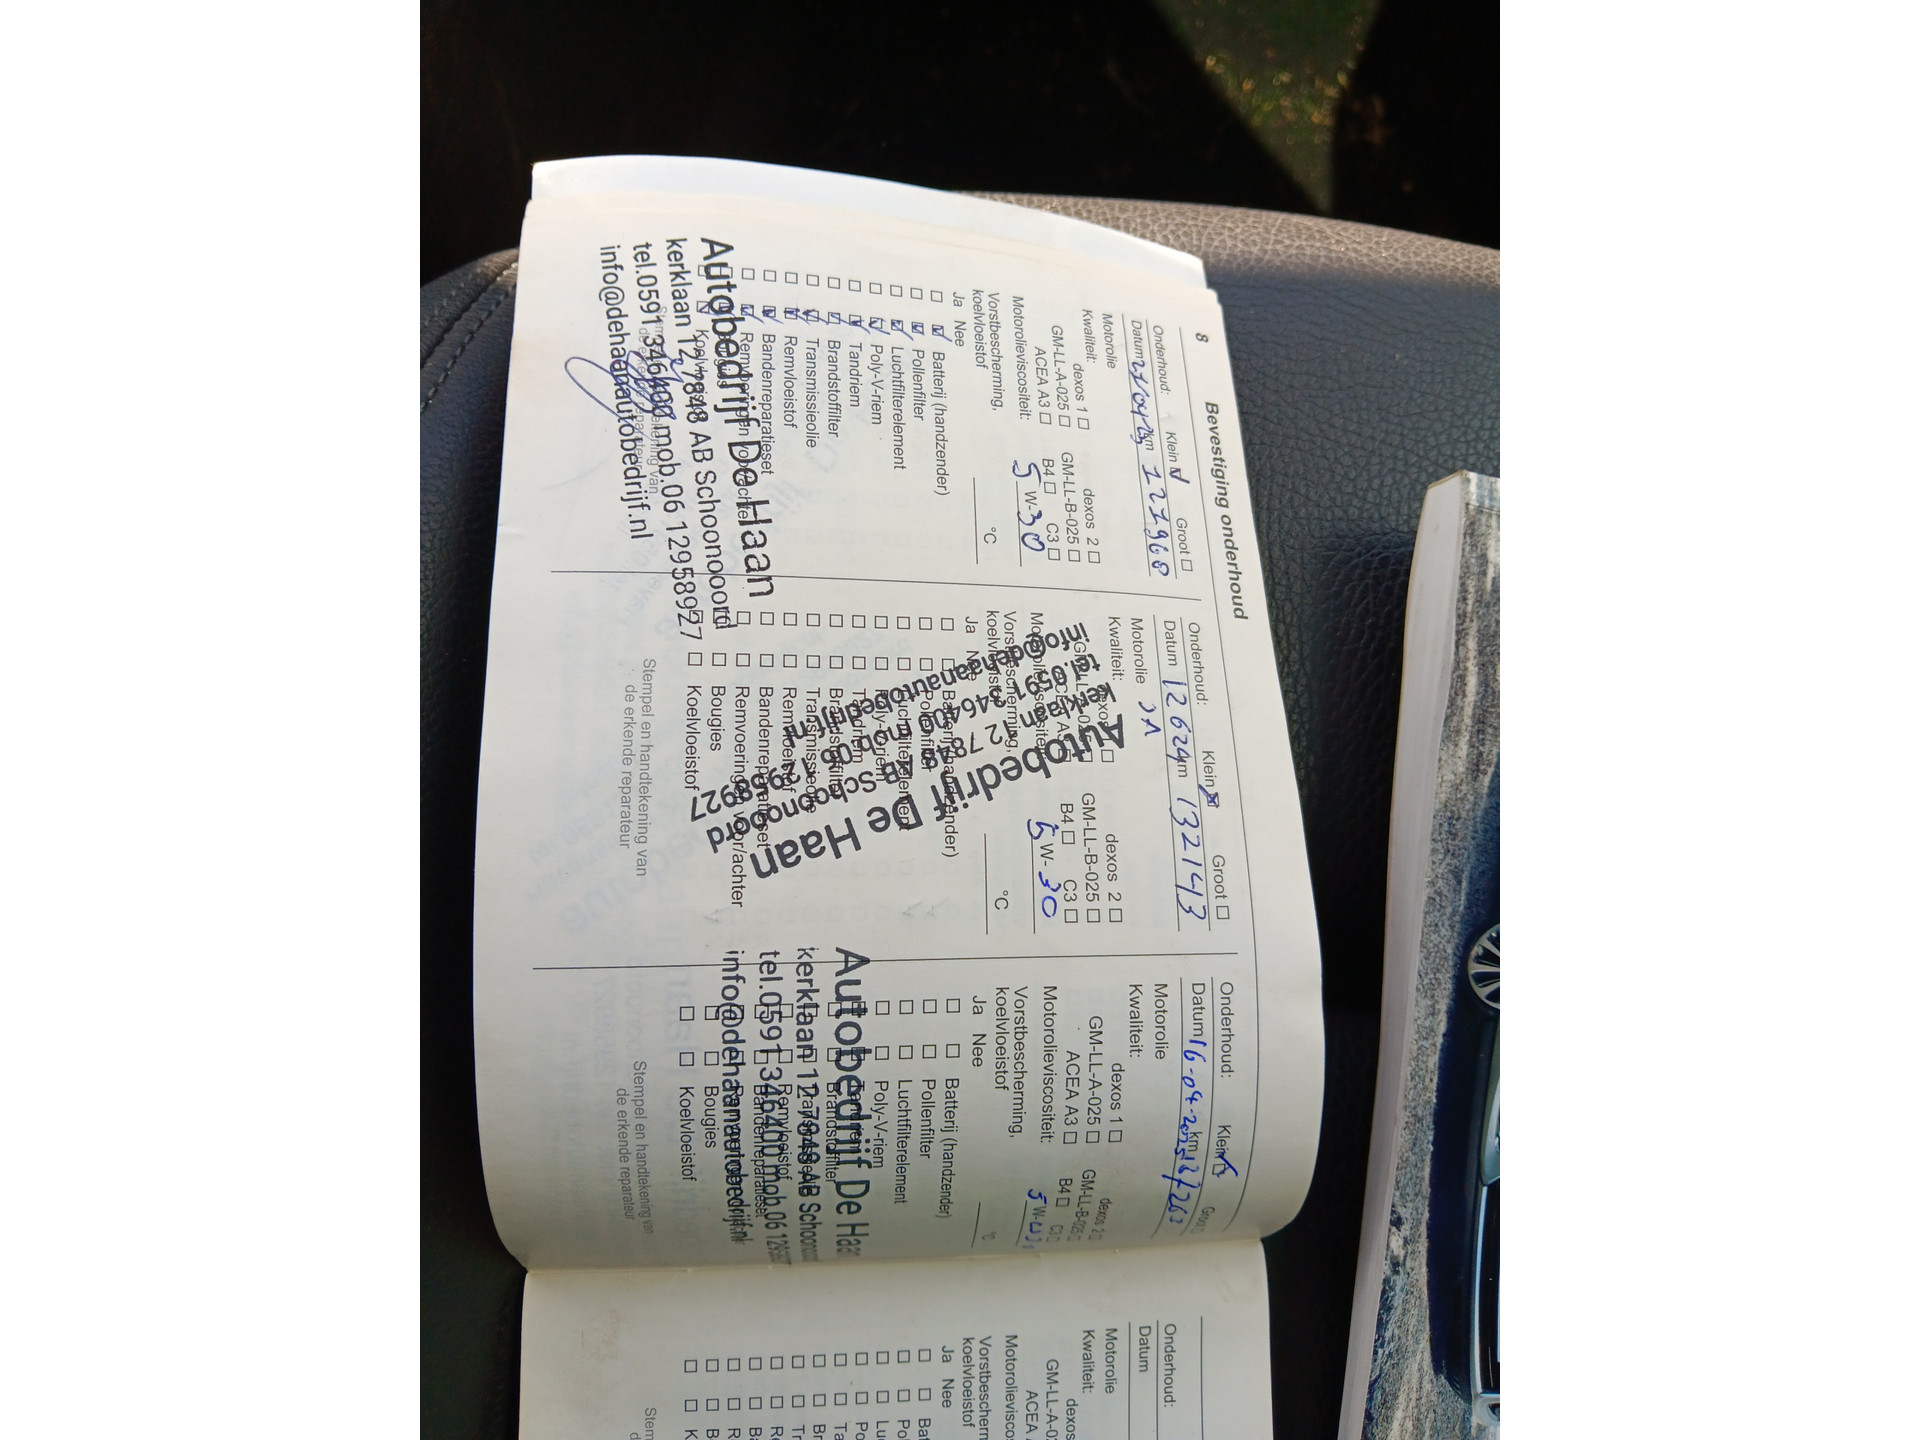 8
Bevestiging onderhoud
Onderhoud: Klein Groot
Datum km
Motorolie
Kwaliteit: dexos 1 dexos 2
GM-LL-A-025 GM-LL-B-025
ACEA A3 B4 C3
Motorolieviscositeit: 5 W-30
Vorstbescherming,
koelvloeistof °C
Ja Nee
Batterij (handzender)
Pollenfilter
Luchtfilterelement
Poly-V-riem
Tandriem
Brandstoffilter
Transmissieolie
Remvloeistof
Bandenreparatieset
Remvoeringen voor/achter
Koelvloeistof
Autobedrijf De Haan
kerklaan 12 7848 AB Schoonoord
tel.0591 346400 mob.06 12958927
info@dehaanautobedrijf.nl
Onderhoud: Klein Groot
Datum km 132143
Motorolie JA
Kwaliteit: dexos 2
GM-LL-B-025
B4 C3
5 W-30
Vorstbescherming,
koelvloeistof °C
Ja Nee
Batterij (handzender)
Remvoeringen voor/achter
Bougies
Koelvloeistof
Stempel en handtekening van
de erkende reparateur
Autobedrijf De Haan
kerklaan 12 7848 AB Schoonoord
tel.0591 346400 mob.06 12958927
info@dehaanautobedrijf.nl
Onderhoud: Klein Groot
Datum 16-04-2025 km 137263
Motorolie
Kwaliteit: dexos 1 dexos 2
GM-LL-A-025 GM-LL-B-025
ACEA A3 B4 C3
Motorolieviscositeit: 5 W-
Vorstbescherming,
koelvloeistof °C
Ja Nee
Batterij (handzender)
Pollenfilter
Luchtfilterelement
Poly-V-riem
Brandstoffilter
Remvloeistof
Bandenreparatieset
Bougies
Koelvloeistof
Stempel en handtekening van
de erkende reparateur
Autobedrijf De Haa
kerklaan 12 7848 AB Schoono
tel.0591 346400 mob.06
info@dehaanautobedrijf.nl
Onderhoud:
Datum
Motorolie
Kwaliteit: dexos
GM-LL-A-02
ACEA
Motorolieviscos
Vorstbescherm
koelvloeistof
Ja Nee
Bat
Po
Lu
Po
Ta
Br
Tr
R
B
R
B
K
Stem